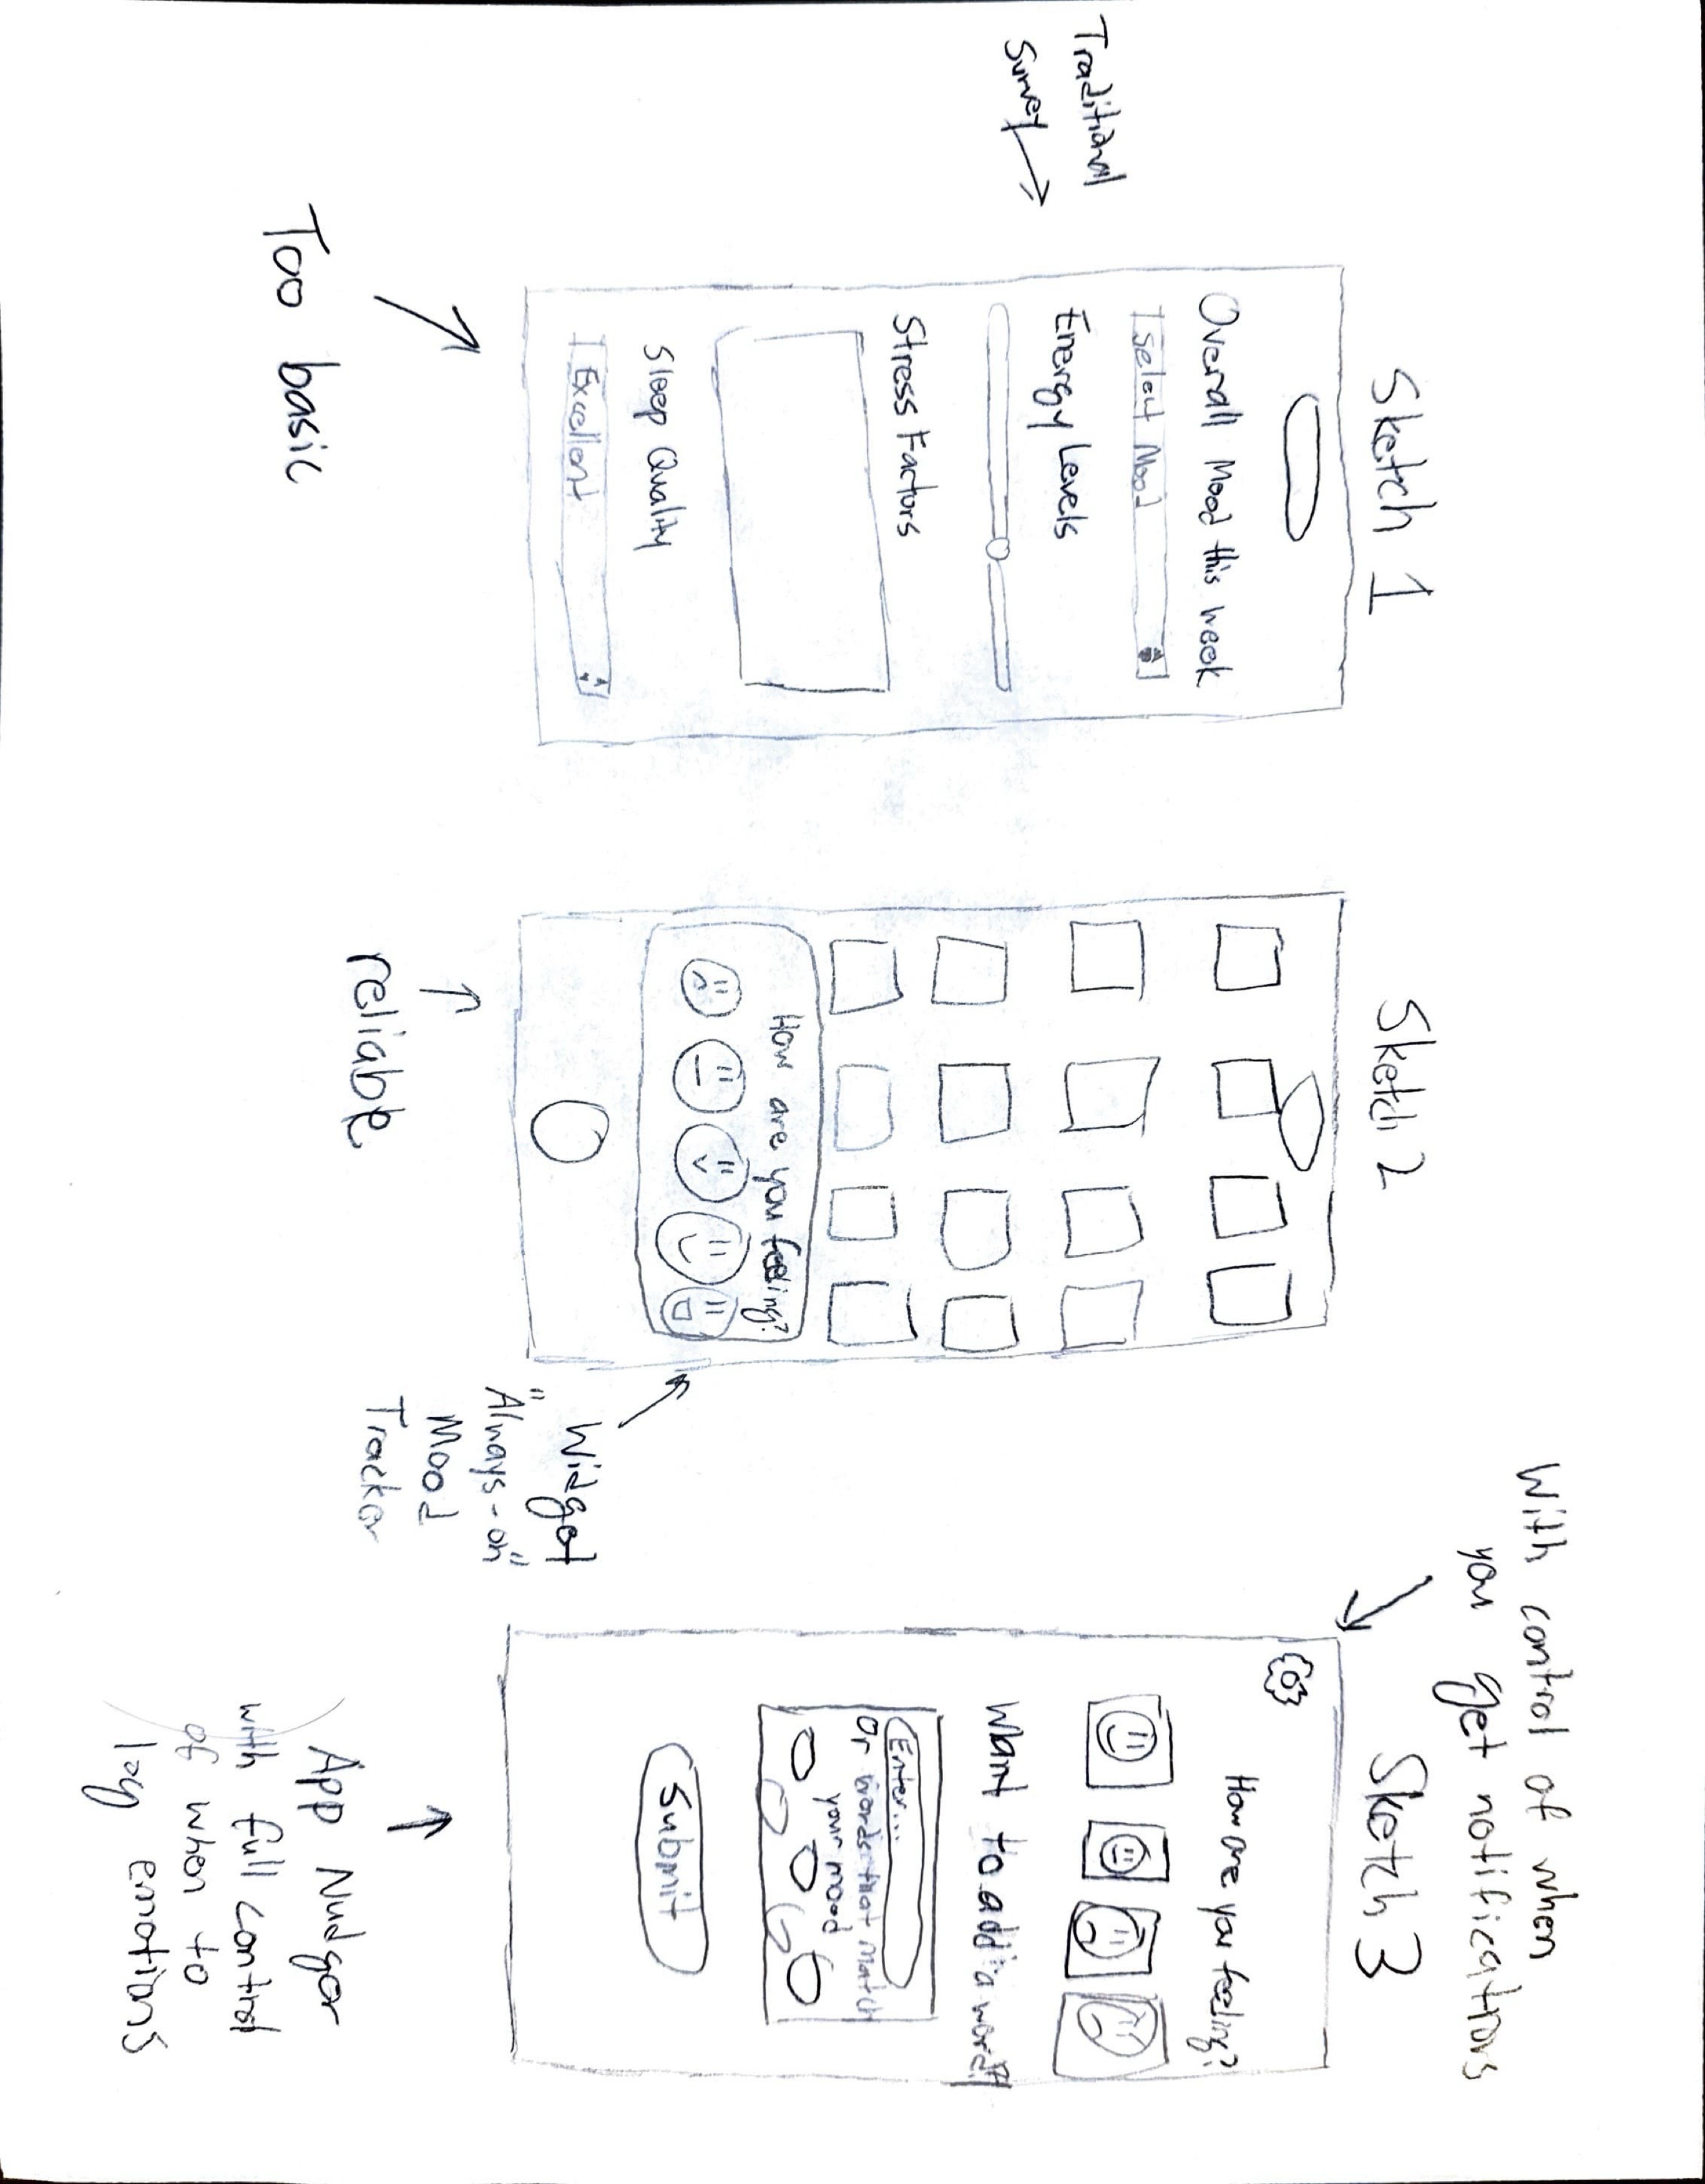 Sketch 1
Traditional
Survey
Overall Mood this week
Select Mood
Energy Levels
Stress Factors
Sleep Quality
Excellent
Too basic
Sketch 2
How are you feeling?
Widget
"Always-on"
Mood
Tracker
reliable
With control of when
you get notifications
Sketch 3
How are you feeling?
Want to add a word?
Enter...
Or words that match
your mood
Submit
App Nudger
with full control
of when to
log emotions